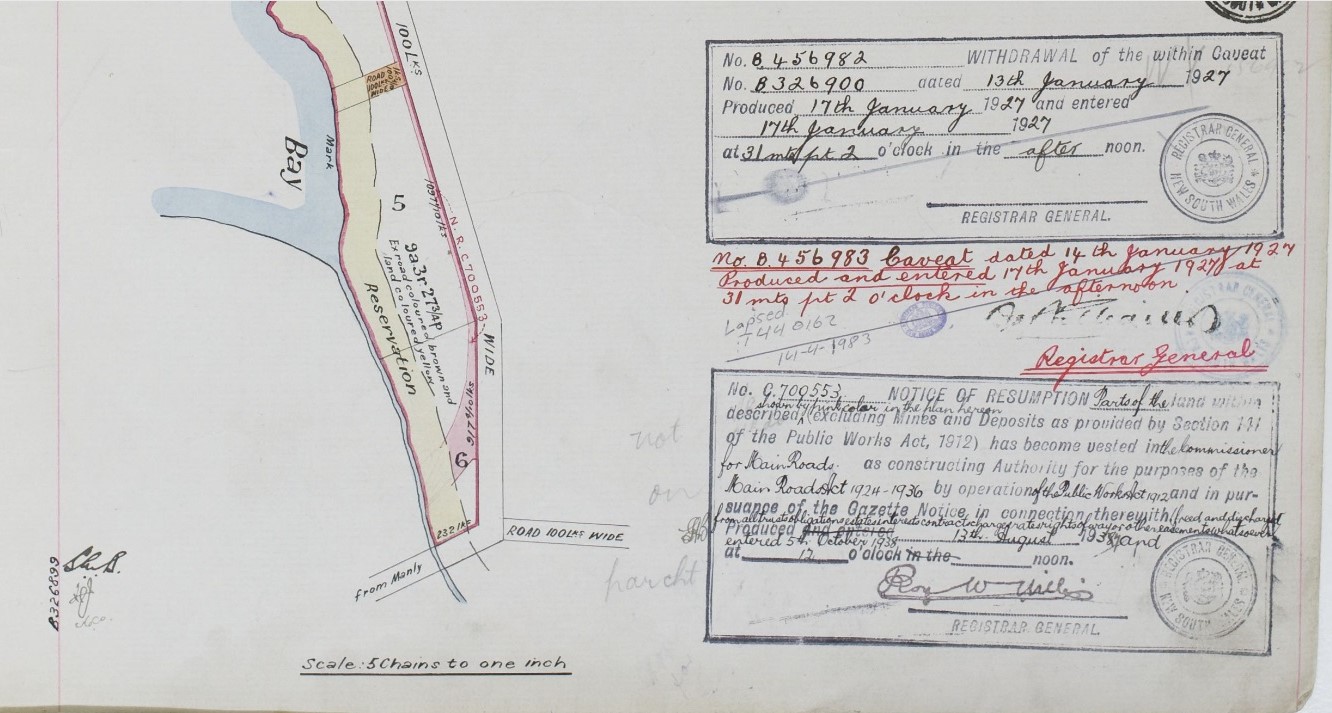 100LKS
ROAD
100LKS
WIDE
Bay
Mark
5
N. R. C700553
WIDE
9a3r27¾AP
Ex road coloured brown and
land coloured yellow
Reservation
6
232 lks
ROAD 100LKS WIDE
from Manly
B326899
Scale: 5 Chains to one inch
No. B 456982 WITHDRAWAL of the within Caveat
No. B326900 dated 13th January 1927
Produced 17th January 1927 and entered
17th January 1927
at 31 mts pt 2 o'clock in the after noon.
REGISTRAR GENERAL.
REGISTRAR GENERAL
NEW SOUTH WALES
No. B 456983 Caveat dated 14th January 1927
Produced and entered 17th January 1927 at
31 mts pt 2 o'clock in the afternoon.
Lapsed
14-4-1983
Registrar General
No. C.700553 NOTICE OF RESUMPTION Parts of the land within
shown by pink color in the plan hereon
described, (excluding Mines and Deposits as provided by Section 141
of the Public Works Act, 1912) has become vested in the Commissioner
for Main Roads. as constructing Authority for the purposes of the
Main Roads Act 1924-1936 by operation of the Public Works Act 1912 and in pur-
suance of the Gazette Notice in connection therewith freed and discharged
from all trusts obligations estates interests contracts charges rates rights of way or other easements whatsoever
Produced and entered 13th August 1938 and
entered 5th October 1938
at 12 o'clock in the noon.
Roy W Willis
REGISTRAR GENERAL.
REGISTRAR GENERAL
NEW SOUTH WALES
not
on
parcht